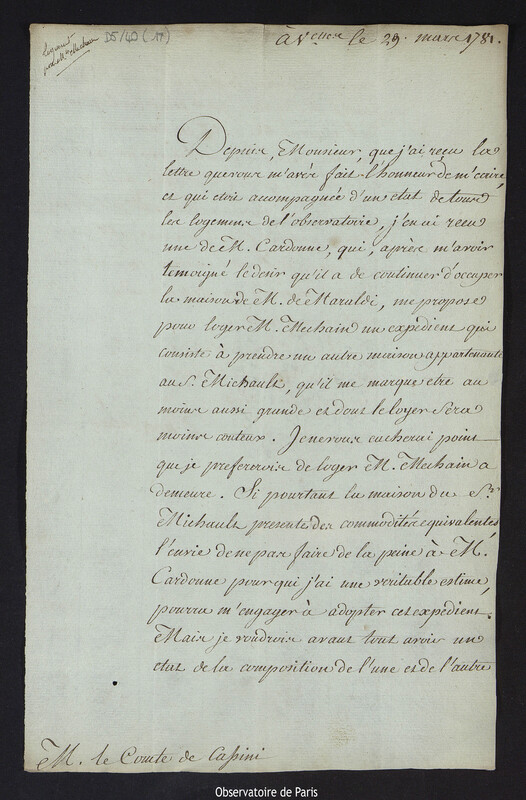 Logement
pour Mr Mechain
D5/40 (17)
à V.elles le 29. mars 1781.
Depuis, Monsieur, que j'ai reçu la
lettre que vous m'avés fait l'honneur de m'ecrire,
et qui etoit acompagnée d'un etat de tous
les logemens de l'observatoire, j'en ai reçu
une de M. Cardonne, qui, après m'avoir
temoigné le desir qu'il a de continuer d'occuper
la maison de M. de Maraldi, me propose
pour loger M. Mechain un expedient qui
consiste à prendre un autre maison appartenante
au S. Michault, qu'il me marque etre au
moins aussi grande et dont le loyer sera
moins couteux. Je ne vous cacherai point
que je prefererois de loger M. Mechain a
demeure. Si pourtant la maison du S.r
Michault presente des commodités equivalentes
l'envie de ne pas faire de la peine à M.
Cardonne pour qui j'ai une veritable estime,
pourra m'engager à adopter cet expedient.
Mais je voudrois avant tout avoir un
etat de la composition de l'une et de l'autre
M. le Comte de Cassini
Observatoire de Paris